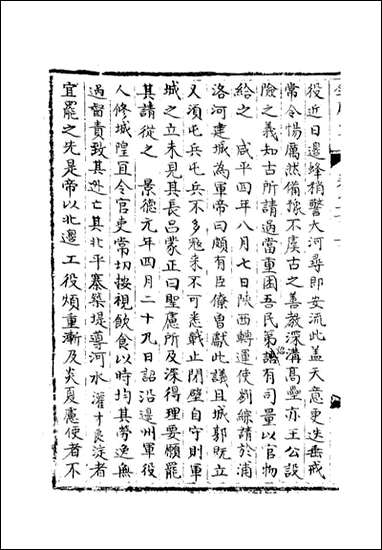 役近日邊蜂稍警大河尋即安流此盖天意更迭垂戒
常令惕厲然備豫不虞古之善教深溝高壘亦王公設
險之義知古所請過當重困吾民第詔有司量以官物
給之　咸平四年八月七日陝西轉運使劉綜請於浦
洛河建城為軍帝曰頗有臣僚曽獻此議且城郭既立
又須屯兵屯兵不多寇来不可悉戰止閉壁自守則軍
城之立未見其長吕蒙正曰聖慮所及深得理要願罷
其請從之　景德元年四月二十九日詔沿邊州軍役
人修城隍宜令官吏常切按視飲食以時均其勞逸無
過督責致其逃亡其北平寨築堤導河水灌才良淀者
宜罷之先是帝以北邊工役煩重漸及炎夏慮使者不